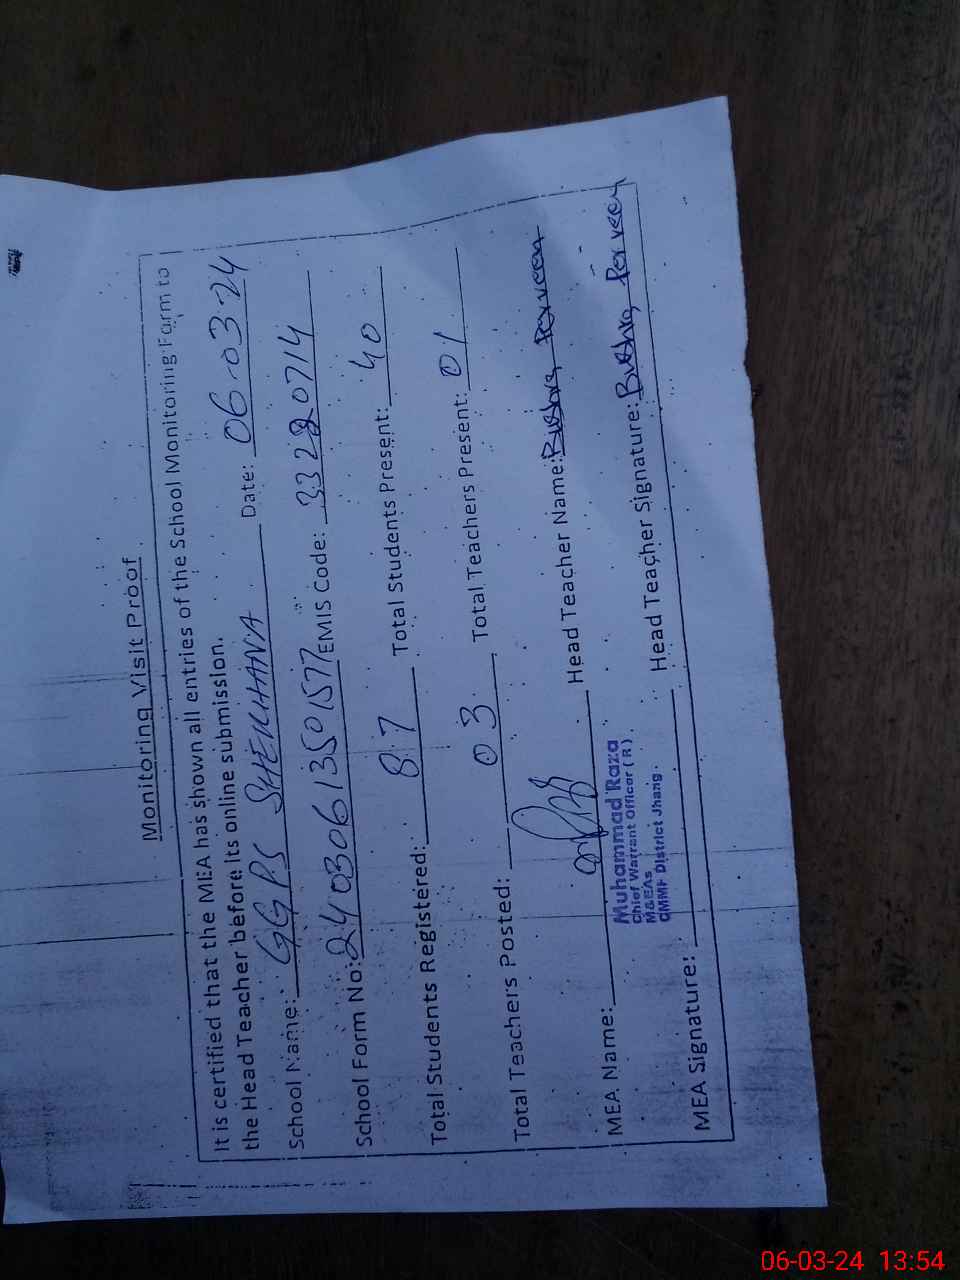 Monitoring Visit Proof
It is certified that the MEA has shown all entries of the School Monitoring Form to
the Head Teacher before its online submission.
School Name: GGPS SHEKHANA Date: 06-03-24
School Form No: 24030613501577 EMIS Code: 33220714
Total Students Registered: 87 Total Students Present: 40
Total Teachers Posted: 03 Total Teachers Present: 01
MEA Name: Head Teacher Name: Bushra Perveen
Muhammad Raza
Chief Warrant Officer (R)
M&EAs
CMMF District Jhang
MEA Signature: Head Teacher Signature: Bushra Perveen
06-03-24 13:54